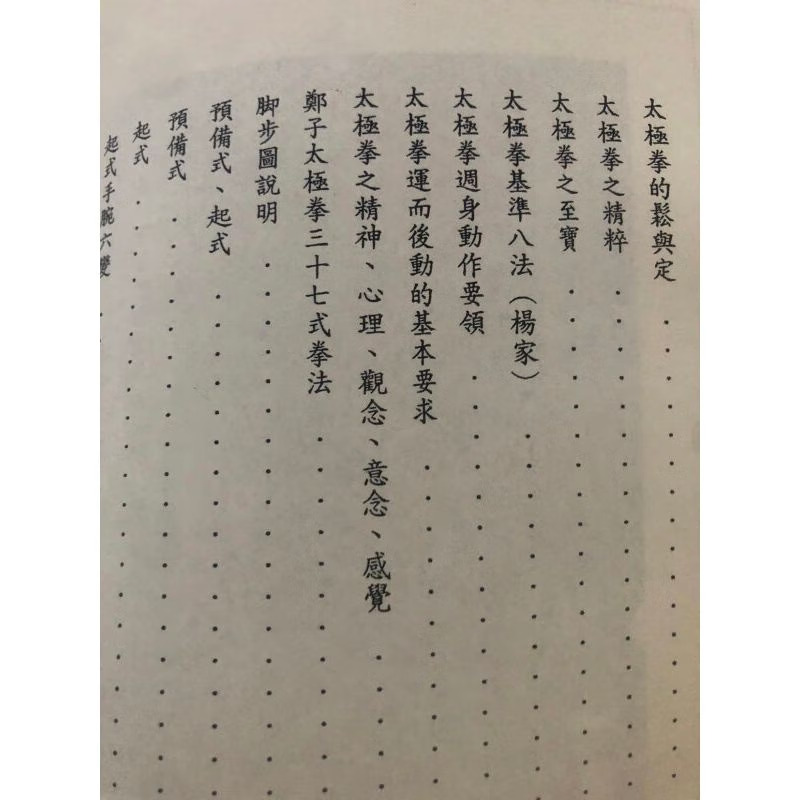 太極拳的鬆與定
太極拳之精粹
太極拳之至寶
太極拳基準八法（楊家）
太極拳週身動作要領
太極拳運而後動的基本要求
太極拳之精神、心理、觀念、意念、感覺
鄭子太極拳三十七式拳法
脚步圖說明
預備式、起式
預備式
起式
起式手腕六變